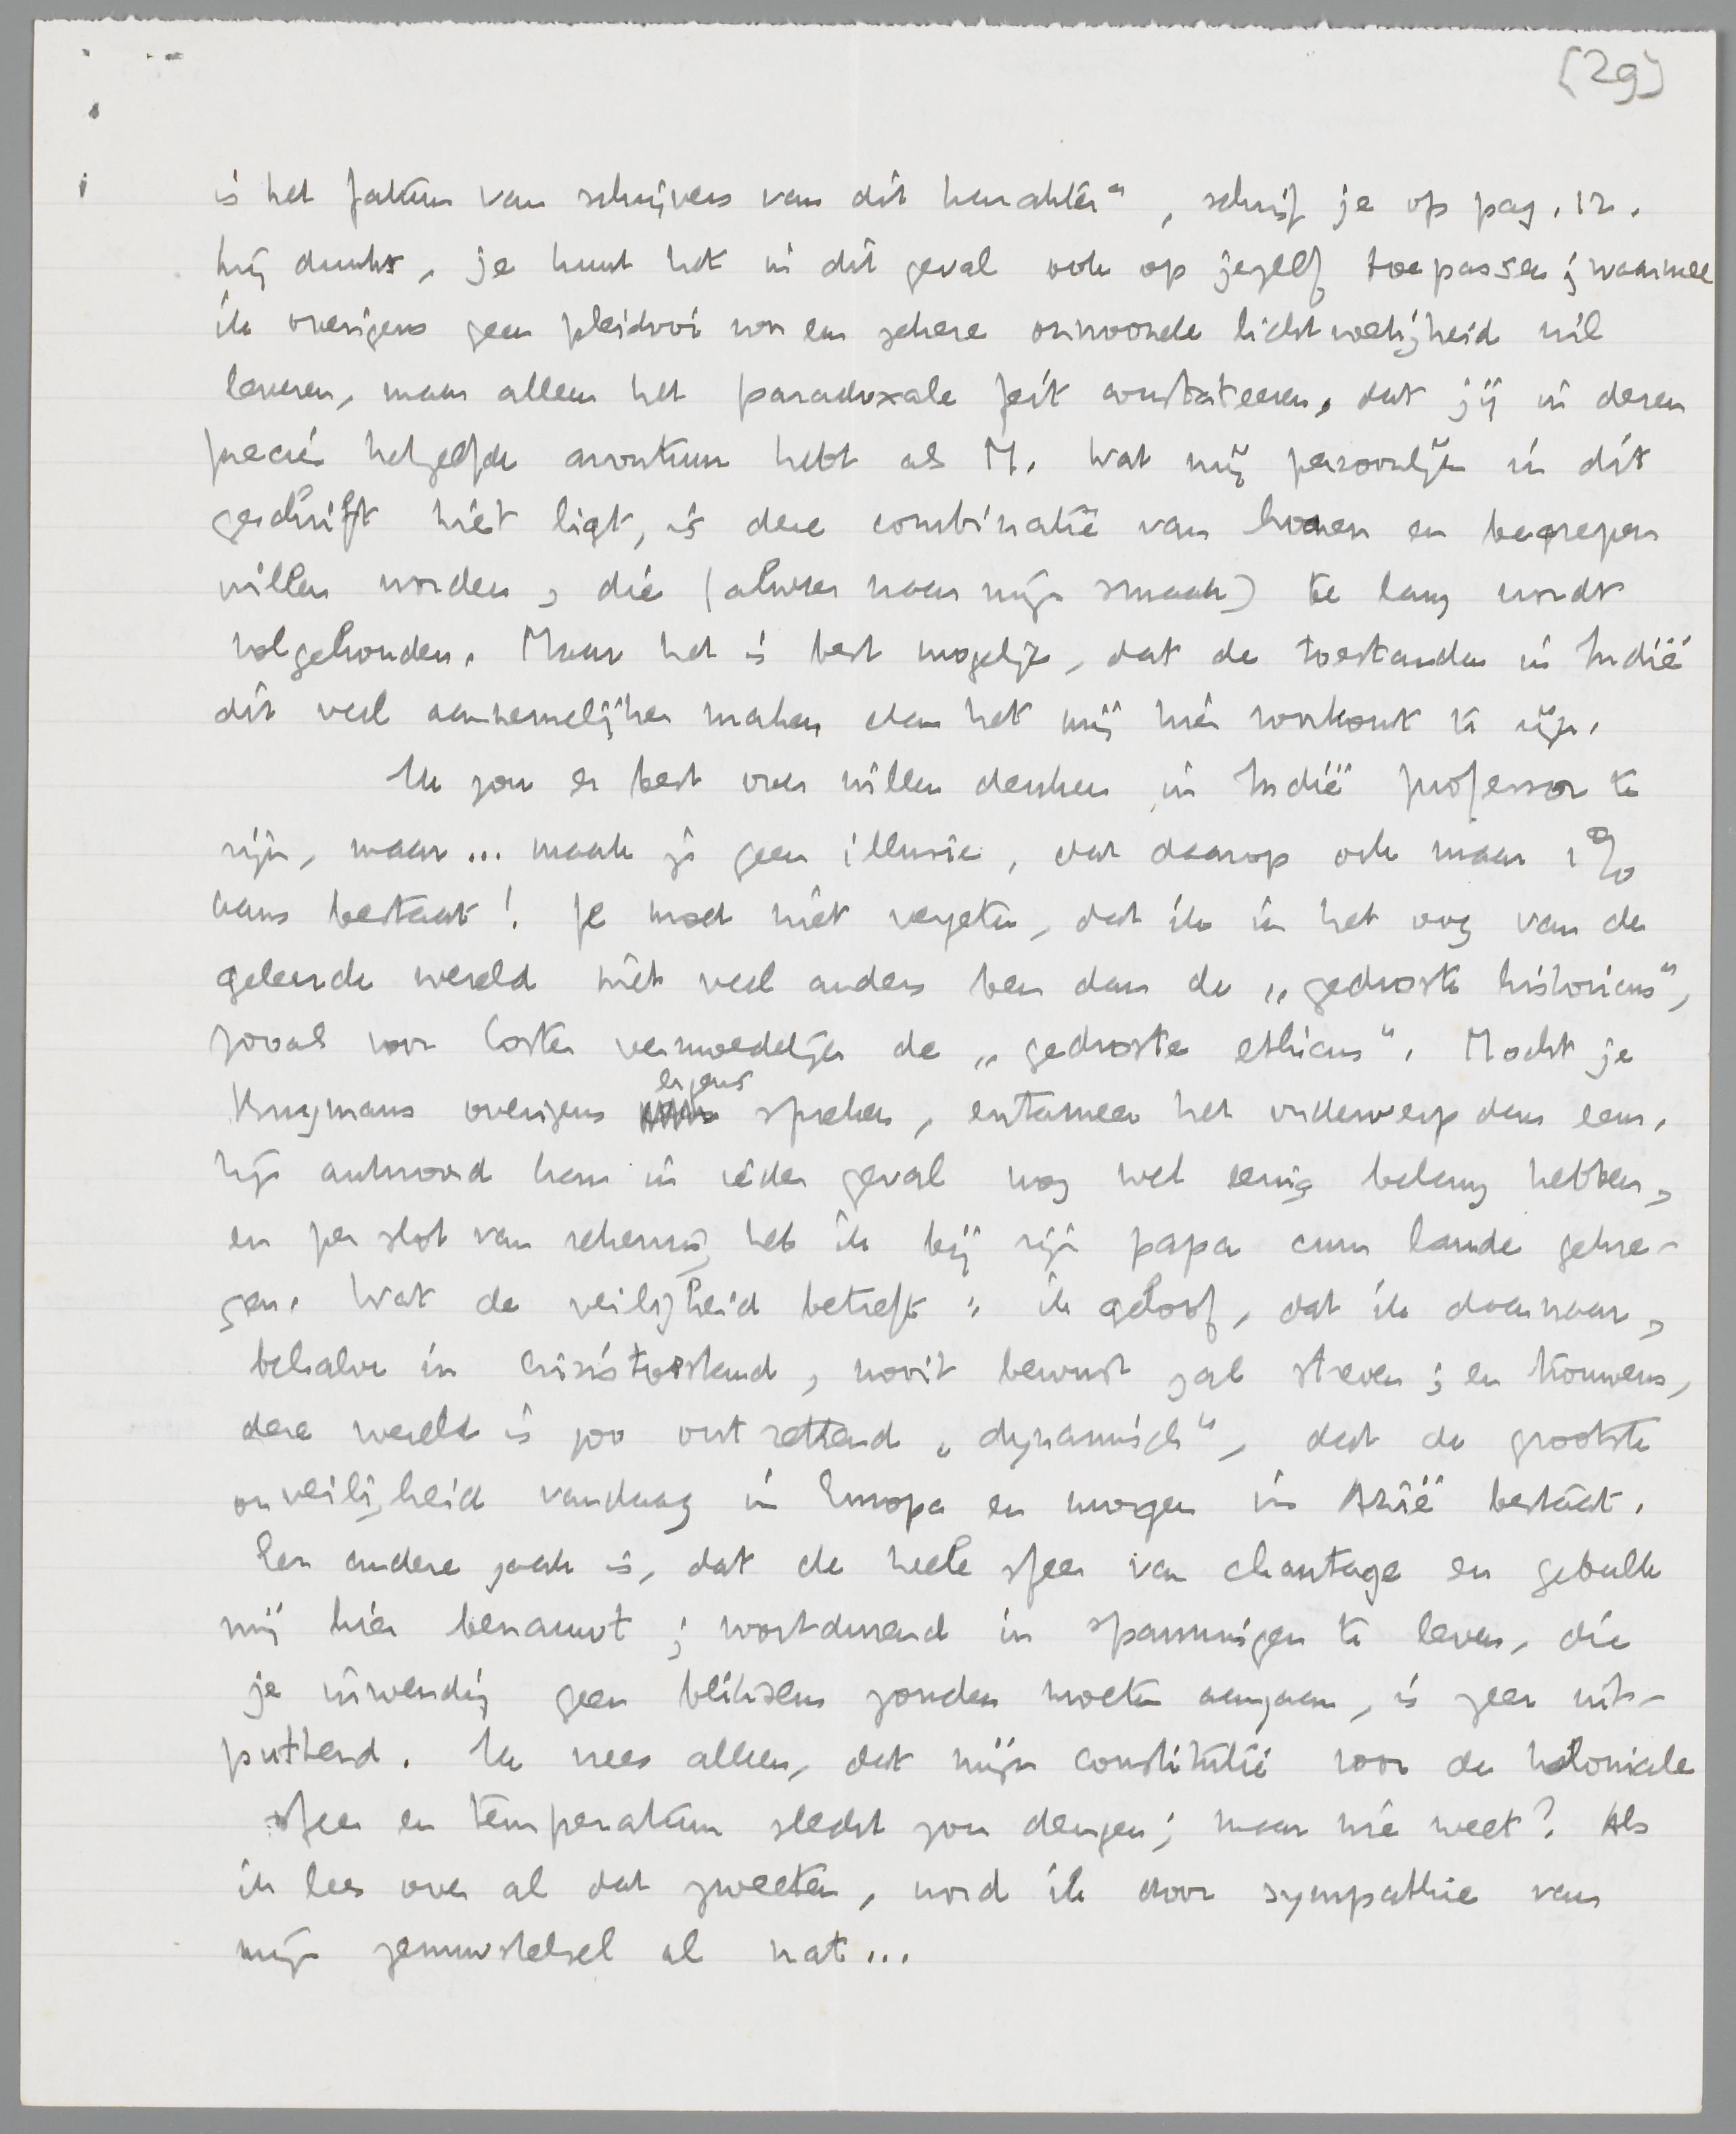 [29]
is het fatum van schrijvers van dit karakter", schrijf je op pag. 12.
Mij dunkt, je kunt het in dit geval ook op jezelf toepassen; waarmee
ik overigens geen pleidooi voor een zekere onwoonde lichtvoetigheid wil
leveren, maar alleen het paradoxale feit constateeren, dat jij in dezen
precies hetzelfde avontuur hebt als M. Wat mij persoonlijk in dit
geschrift niet ligt, is deze combinatie van honen en begrepen
willen worden, die (alweer naar mijn smaak) te lang wordt
volgehouden. Maar het is best mogelijk, dat de toestanden in Indië
dit veel aannemelijker maken dan het mij hier voorkomt te zijn.
Ik zou er best over willen denken in Indië professor te
zijn, maar... maak je geen illusie, dat daarop ook maar 1%
kans bestaat! Je moet niet vergeten, dat ik in het oog van de
geleerde wereld niet veel anders ben dan de „gedroste historicus",
zooals voor Coster vermoedelijk de „gedroste ethicus". Mocht je
Krugmans overigens ergens spreken, entameer het onderwerp dan eens.
Zijn antwoord kan in ieder geval nog wel eenig belang hebben,
en per slot van rekening heb ik bij zijn papa cum laude gekre-
gen. Wat de veiligheid betreft: ik geloof, dat ik daarnaar,
behalve in crisistoestand, nooit bewust zal streven; en trouwens,
deze wereld is zoo ontzettend „dynamisch", dat de grootste
onveiligheid vandaag in Europa en morgen in Azië bestaat.
Een andere zaak is, dat de heele sfeer van chantage en gebulk
mij hier benauwt; voortdurend in spanningen te leven, die
je inwendig geen bliksem zouden moeten aangaan, is zeer uit-
puttend. Ik vrees alleen, dat mijn constitutie voor de koloniale
sfeer en temperatuur slecht zou deugen; maar wie weet? Als
ik lees over al dat zweeten, word ik door sympathie van
mijn zenuwstelsel al nat...